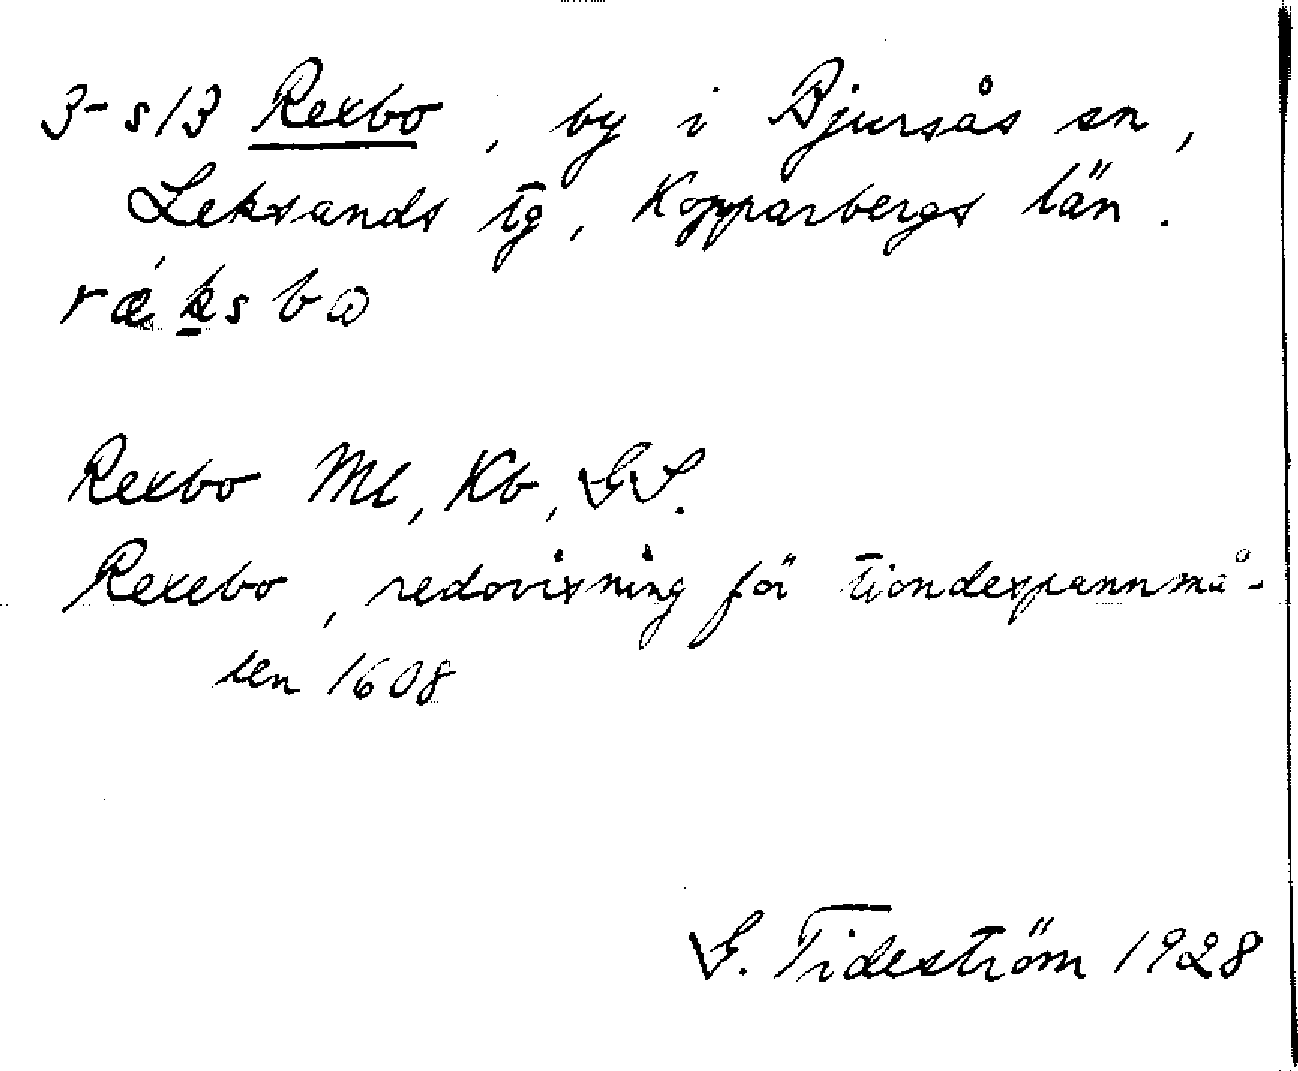 3-s13 Rexbo, by i Bjursås sn,
Leksands tg, Kopparbergs län.
ræ´ksbɷ
Rexbo Ml, Kb, GS.
Rexebo, redovisning för tiondespannmå-
len 1608
G. Tideström 1928